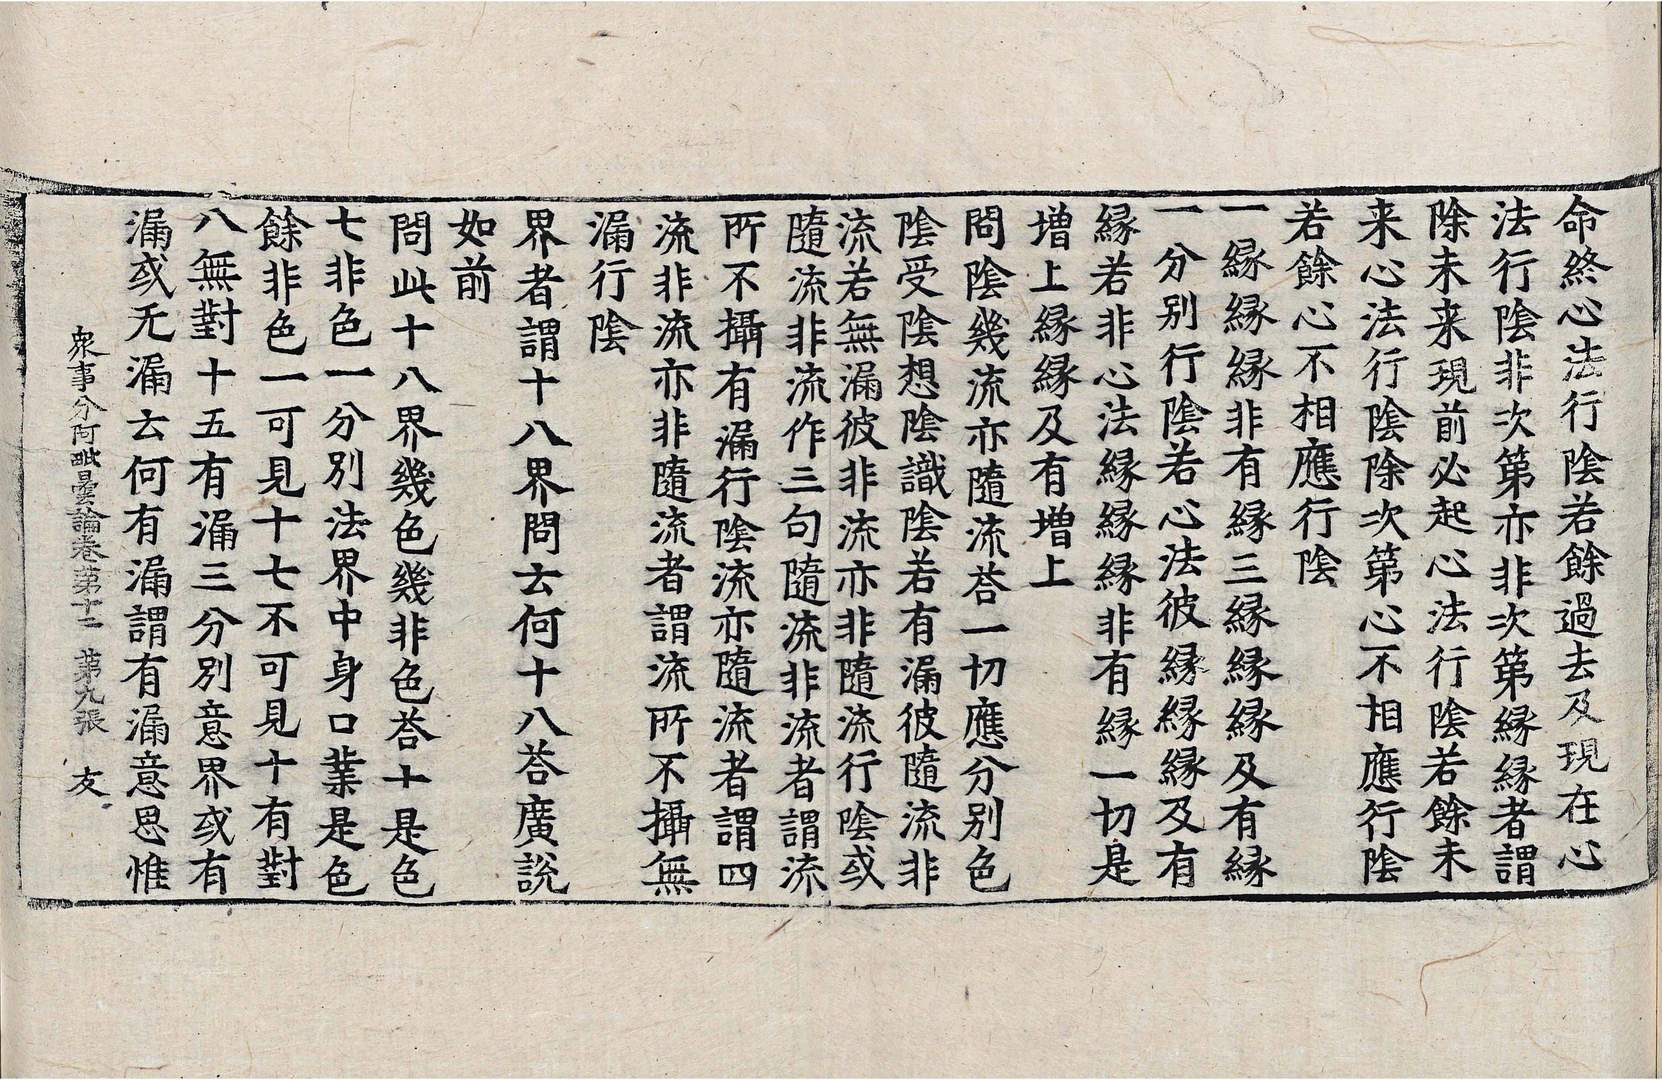 命終心法行陰若餘過去及現在心
法行陰非次第亦非次第縁縁者謂
除未来現前必起心法行陰若餘未
来心法行陰除次第心不相應行陰
若餘心不相應行陰
一縁縁縁非有縁三縁縁縁及有縁
一分別行陰若心法彼縁縁縁及有
縁若非心法縁縁縁縁非有縁一切是
增上縁縁及有增上
問陰幾流亦隨流荅一切應分別色
陰受陰想陰識陰若有漏彼隨流非
流若無漏彼非流亦非隨流行陰或
隨流非流作三句隨流非流者謂流
所不攝有漏行陰流亦隨流者謂四
流非流亦非隨流者謂流所不攝無
漏行陰
界者謂十八界問云何十八荅廣說
如前
問此十八界幾色幾非色荅十是色
七非色一分別法界中身口業是色
餘非色一可見十七不可見十有對
八無對十五有漏三分別意界或有
漏或无漏云何有漏謂有漏意思惟
衆事分阿毗曇論卷第十二 第九張 友